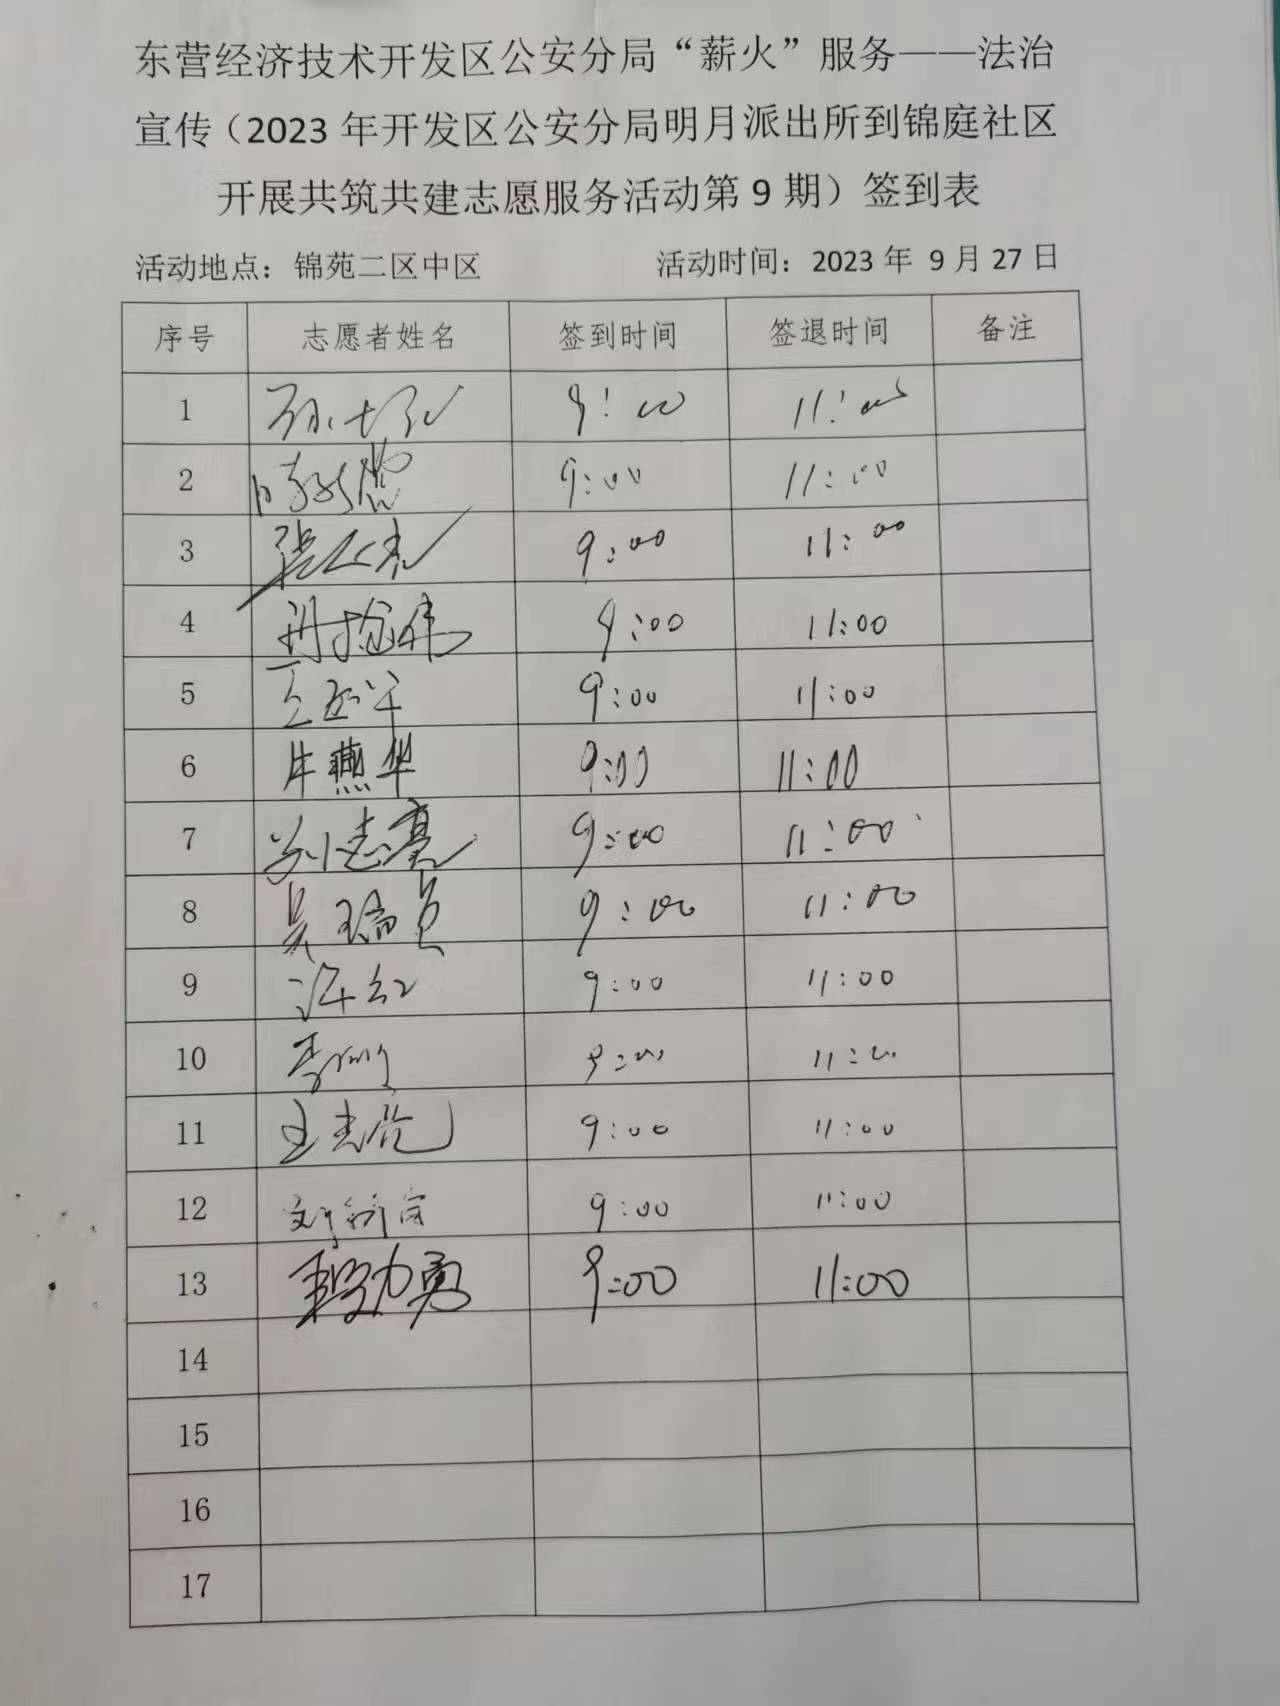 东营经济技术开发区公安分局“薪火”服务——法治
宣传（2023年开发区公安分局明月派出所到锦庭社区
开展共筑共建志愿服务活动第9期）签到表
活动地点：锦苑二区中区 活动时间：2023年 9月27日
序号 志愿者姓名 签到时间 签退时间 备注
1 9:00 11:00
2 9:00 11:00
3 9:00 11:00
4 9:00 11:00
5 9:00 11:00
6 牛燕华 9:00 11:00
7 刘志亮 9:00 11:00
8 吴瑞 9:00 11:00
9 9:00 11:00
10 9:00 11:00
11 9:00 11:00
12 9:00 11:00
13 9:00 11:00
14
15
16
17